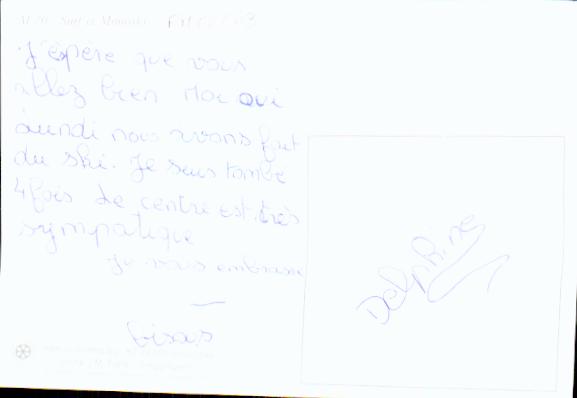 J'éspère que vous
allez bien Moi oui
àundi nous avons fait
du ski. Je suis tombé
4 fois Le centre est très
sympatique
Je vous embrasse
bisous
Delphine